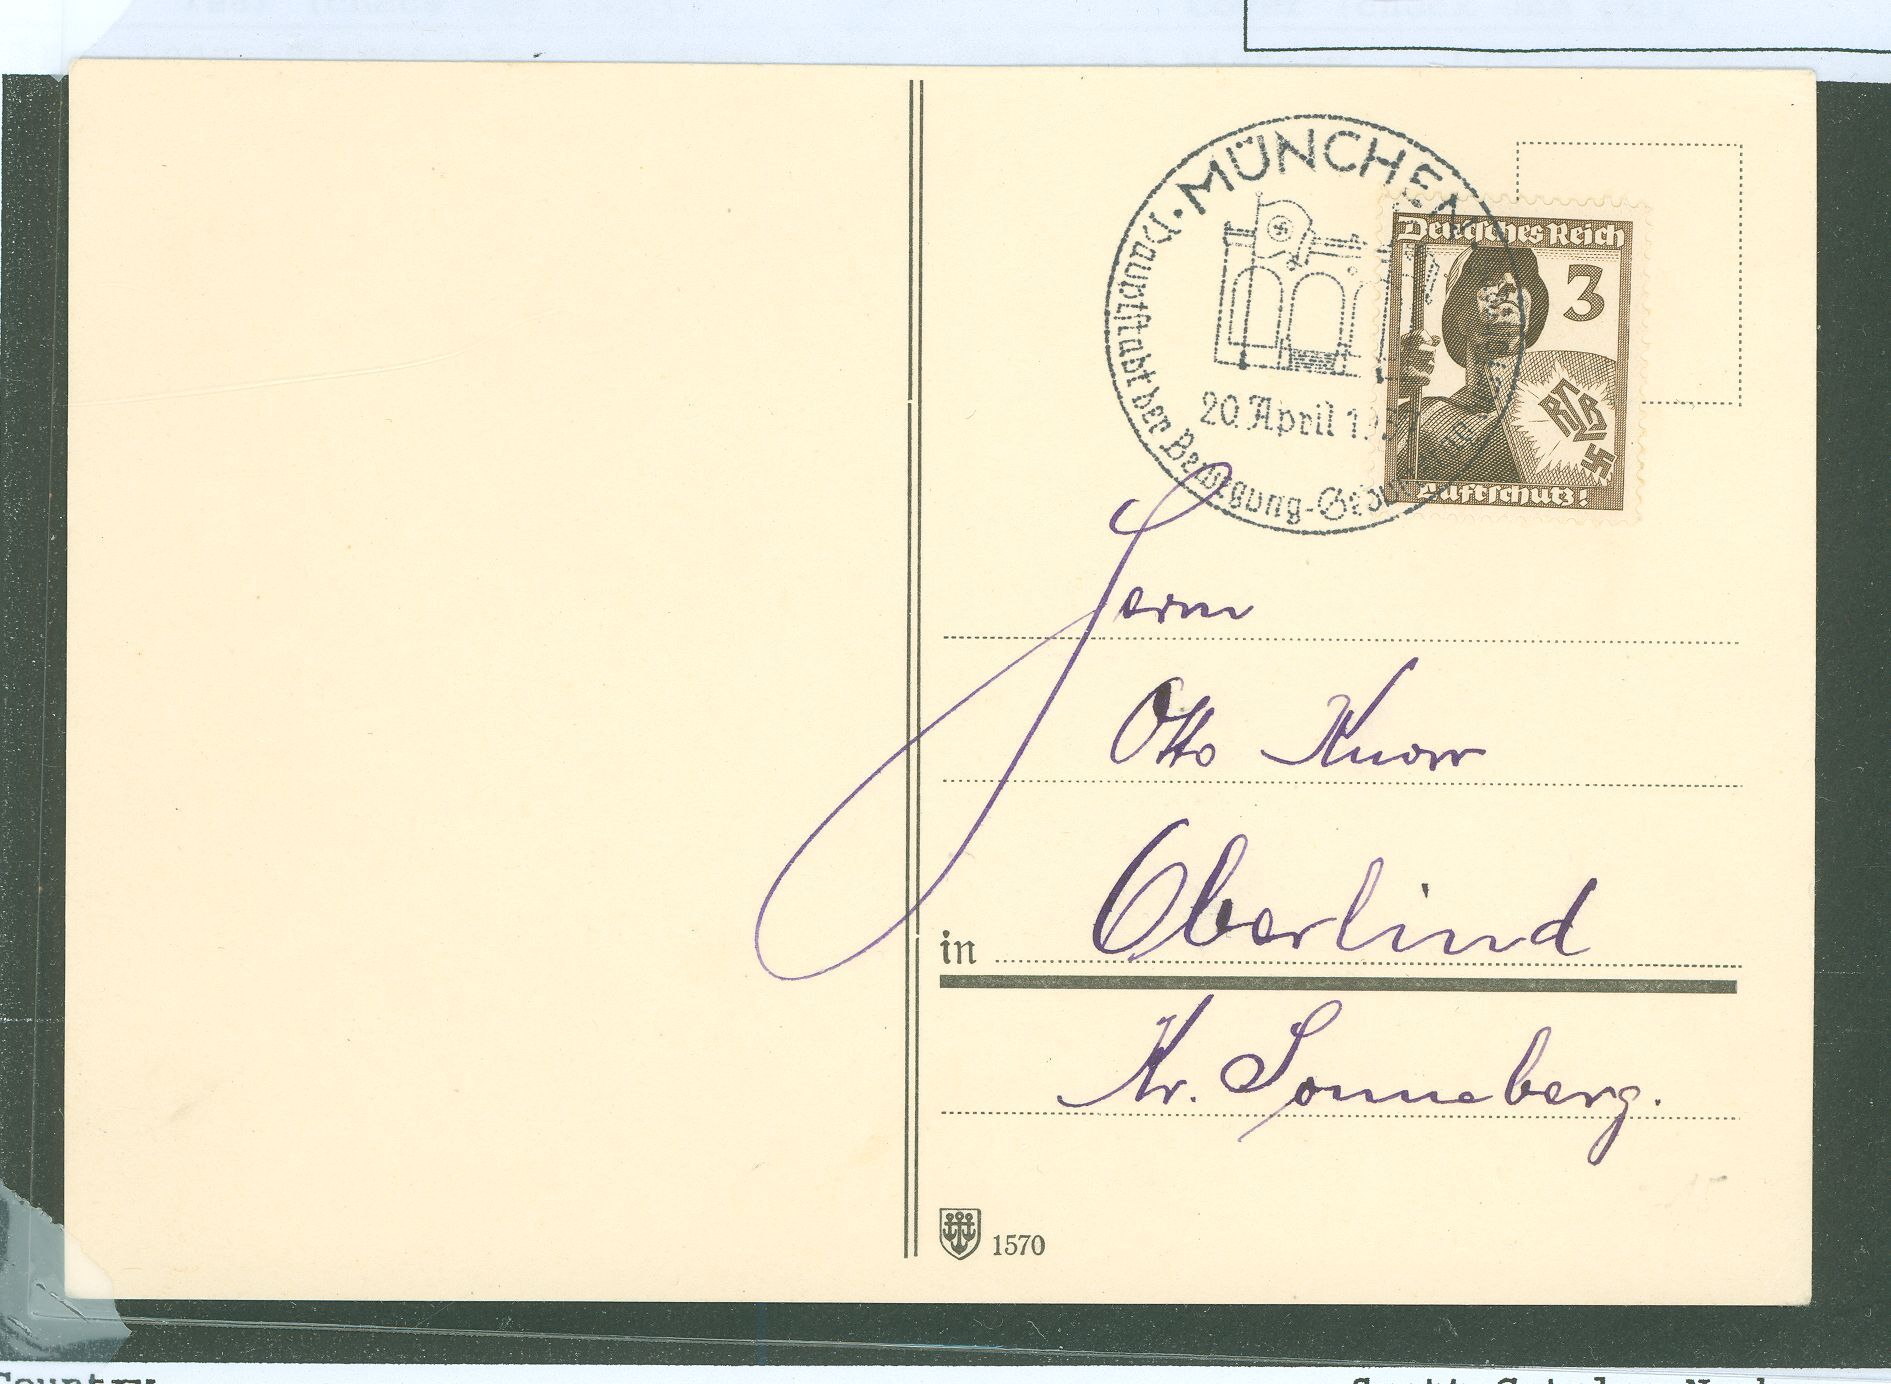 MÜNCHEN
Hauptstadt der Bewegung-
20. April
Deutsches Reich
3
RLB
Luftschutz!
Herrn
Otto Knorr
in Oberlind
Kr. Sonneberg.
1570
Country